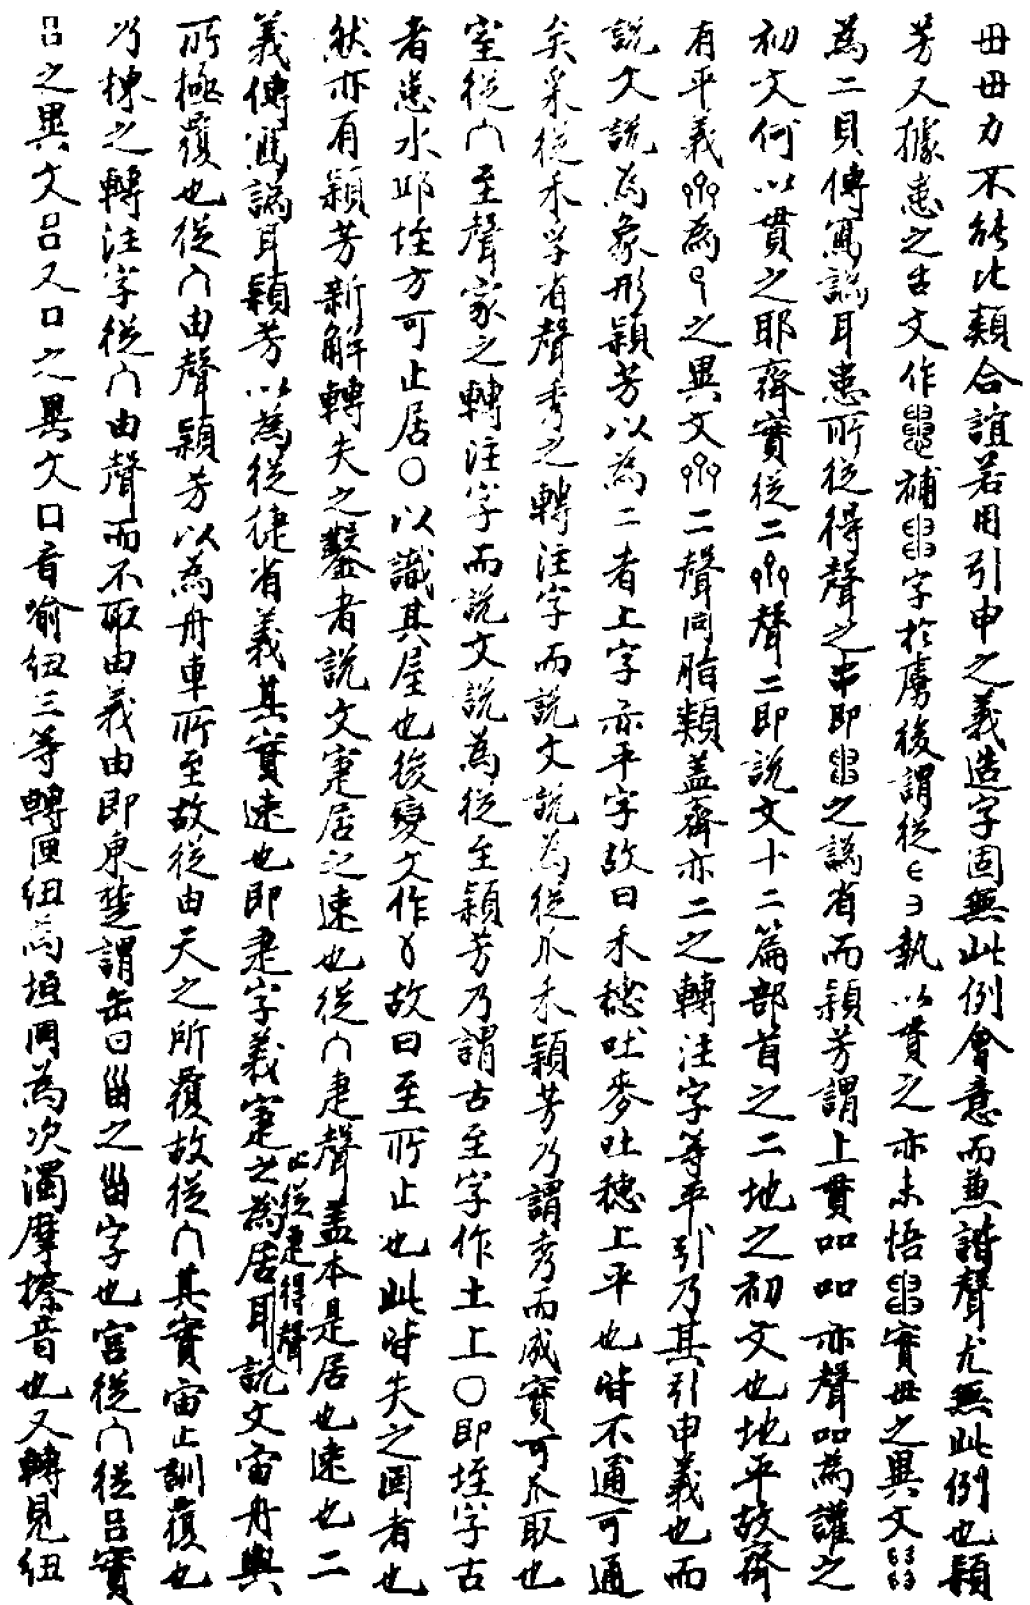 毌毌力不能比類合誼若用引申之義造字固無此例會意而兼諧聲尤無此例也穎
芳又據患之古文作補字於虜後謂從執以貫之亦未悟實毌之異文
為二貝傳寫譌耳患所從得聲之串即之譌省而穎芳謂上貫吅吅亦聲吅為讙之
初文何以貫之耶齊實從二聲二即說文十二篇部首之二地之初文也地平故齊
有平義為之異文二聲同脂類蓋齊亦二之轉注字等平引乃其引申義也而
說文說為象形穎芳以為二者上字亦平字故曰禾穗吐麥吐穗上平也皆不通可通
矣采從禾孚省聲秀之轉注字而說文說為從爪禾穎芳乃謂秀而成實可爪取也
室從宀至聲家之轉注字而說文說為從至穎芳乃謂古至字作土上〇即垤字古
者患水耶垤方可止居〇以識其屋也後變文作故曰至所止也此皆失之固者也
然亦有穎芳新解轉失之鑿者說文寁居之速也從宀疌聲蓋本是居也速也二
義傳寫譌耳穎芳以為從倢省義其實速也即疌字義寁之為居止從疌得聲耳說文宙舟輿
所極覆也從宀由聲穎芳以為舟車所至故從由天之所覆故從宀其實宙止訓覆也
乃棟之轉注字從宀由聲而不取由義由即東楚謂缶曰甾之甾字也宮從宀從呂實
呂之異文呂又口之異文口音喻紐三等轉匣紐為垣同為次濁摩擦音也又轉見紐